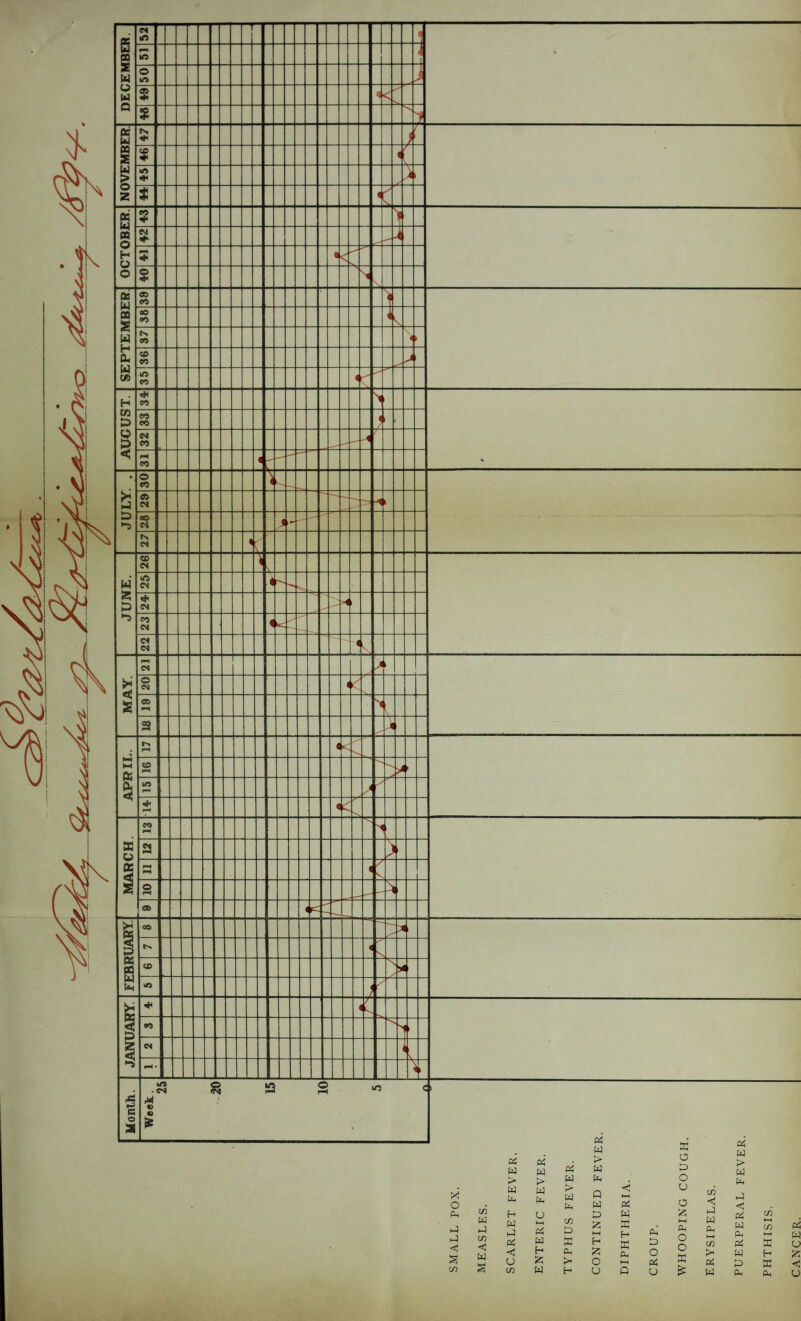 Scarlatina.
Weekly number of Notifications during 1894.
Month. JANUARY. FEBRUARY. MARCH. APRIL. MAY. JUNE. JULY. AUGUST. SEPTEMBER OCTOBER. NOVEMBER DECEMBER.
Week. 1 2 3 4 5 6 7 8 9 10 11 12 13 14 15 16 17 18 19 20 21 22 23 24 25 26 27 28 29 30 31 32 33 34 35 36 37 38 39 40 41 42 43 44 45 46 47 48 49 50 51 52
25
20
15
10
5
0
SMALL POX.
MEASLES.
SCARLET FEVER.
ENTERIC FEVER.
TYPHUS FEVER.
CONTINUED FEVER.
DIPHTHERIA.
CROUP.
WHOOPING COUGH.
ERYSIPELAS.
PUERPERAL FEVER.
PHTHISIS.
CANCER.